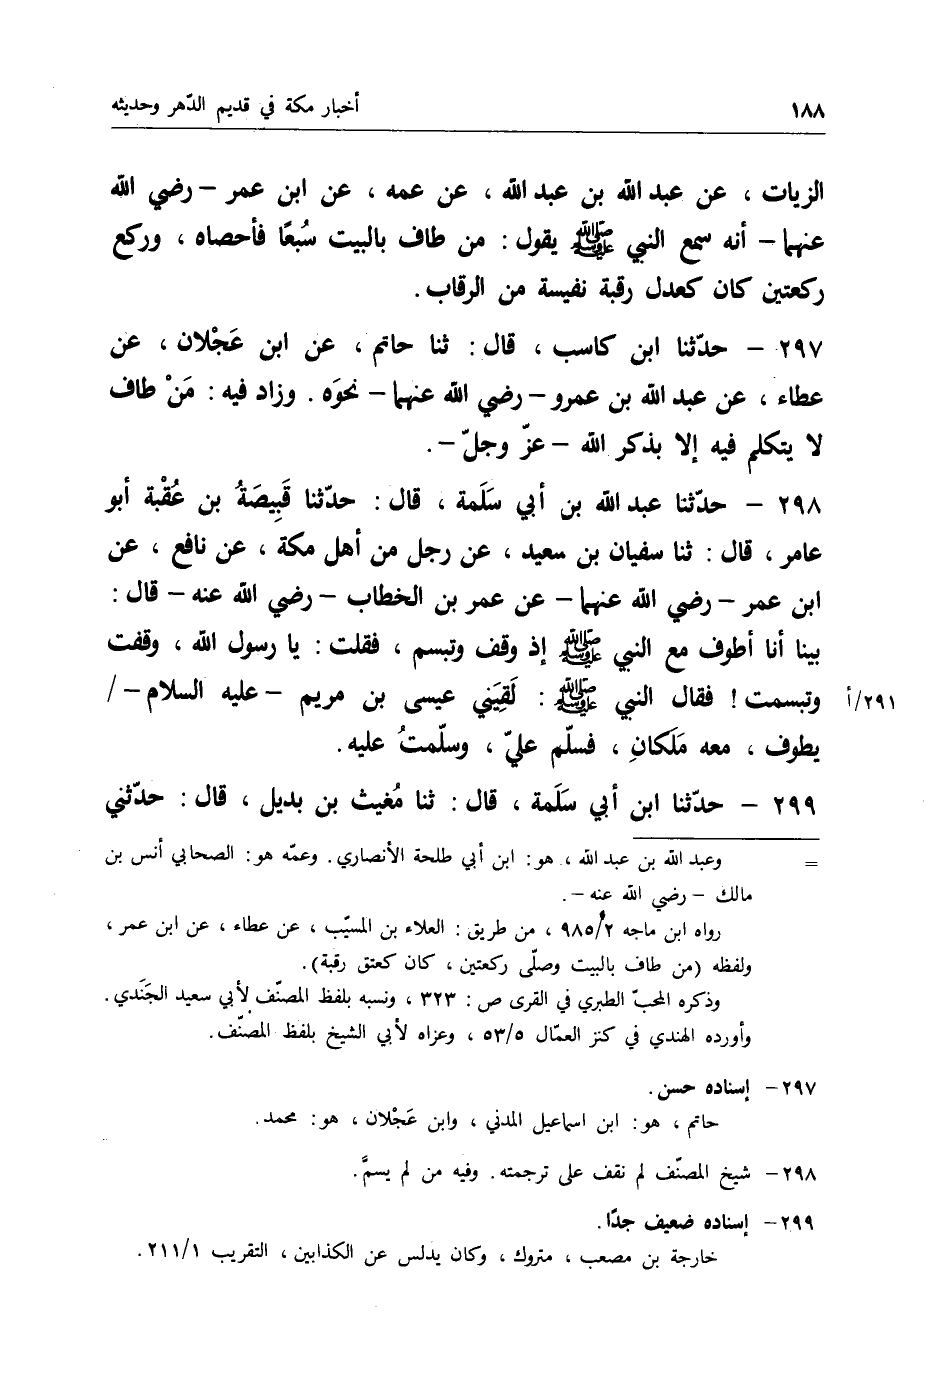 ١٨٨ أخبار مكة في قديم الدّهر وحديثه
الزيات ، عن عبد الله بن عبد الله ، عن عمه ، عن ابن عمر – رضي الله
عنهما – أنه سمع النبي ﷺ يقول : من طاف بالبيت سُبعًا فأحصاه ، وركع
ركعتين كان كعدل رقبة نفيسة من الرقاب .
٢٩٧ – حدّثنا ابن كاسب ، قال : ثنا حاتم ، عن ابن عَجْلان ، عن
عطاء ، عن عبد الله بن عمرو – رضي الله عنهما – نحوَه . وزاد فيه : مَنْ طاف
لا يتكلم فيه إلا بذكر الله – عزّ وجلّ – .
٢٩٨ – حدّثنا عبد الله بن أبي سَلَمة ، قال : حدّثنا قَبِيصَةُ بن عُقْبة أبو
عامر ، قال : ثنا سفيان بن سعيد ، عن رجل من أهل مكة ، عن نافع ، عن
ابن عمر – رضي الله عنهما – عن عمر بن الخطاب – رضي الله عنه – قال :
بينا أنا أطوف مع النبي ﷺ إذ وقف وتبسم ، فقلت : يا رسول الله ، وقفت
٢٩١/أ وتبسمت ! فقال النبي ﷺ : لَقِيَني عيسى بن مريم – عليه السلام – /
يطوف ، معه مَلَكانِ ، فسلّم عليّ ، وسلّمتُ عليه .
٢٩٩ – حدّثنا ابن أبي سَلَمة ، قال : ثنا مُغيث بن بديل ، قال : حدّثني
= وعبد الله بن عبد الله ، هو : ابن أبي طلحة الأنصاري . وعمّه هو : الصحابي أنس بن
مالك – رضي الله عنه – .
رواه ابن ماجه ٩٨٥/٢ ، من طريق : العلاء بن المسيّب ، عن عطاء ، عن ابن عمر ،
ولفظه (من طاف بالبيت وصلّى ركعتين ، كان كعتق رقبة) .
وذكره المحبّ الطبري في القرى ص : ٣٢٣ ، ونسبه بلفظ المصنّف لأبي سعيد الجَنَدي .
وأورده الهندي في كنز العمّال ٥٣/٥ ، وعزاه لأبي الشيخ بلفظ المصنّف .
٢٩٧ – إسناده حسن .
حاتم ، هو : ابن اسماعيل المدني ، وابن عَجْلان ، هو : محمد .
٢٩٨ – شيخ المصنّف لم نقف على ترجمته . وفيه من لم يسمَّ .
٢٩٩ – إسناده ضعيف جدًا .
خارجة بن مصعب ، متروك ، وكان يدلس عن الكذابين ، التقريب ٢١١/١ .